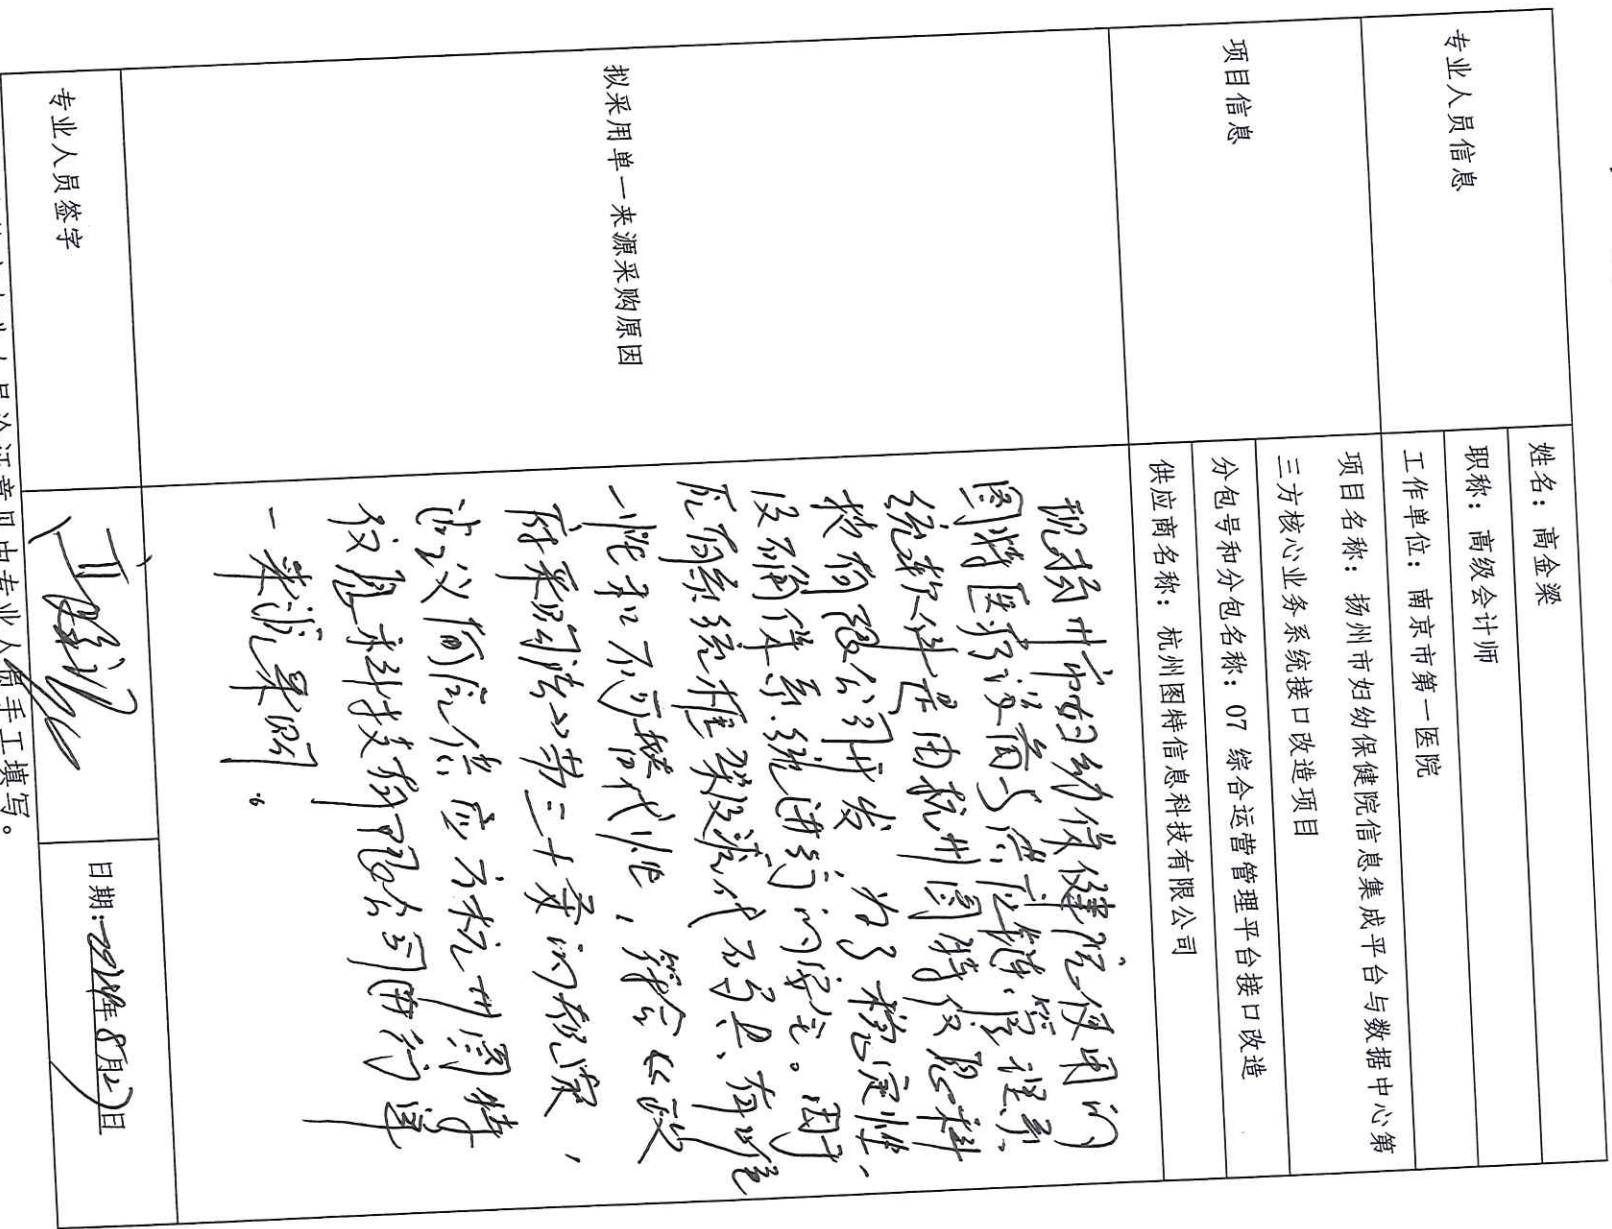 专业人员信息
姓名：高金梁
职称：高级会计师
工作单位：南京市第一医院
项目信息
项目名称：扬州市妇幼保健院信息集成平台与数据中心第
三方核心业务系统接口改造项目
分包号和分包名称：07 综合运营管理平台接口改造
供应商名称：杭州图特信息科技有限公司
拟采用单一来源采购原因
现扬州市妇幼保健院使用的
图特医疗设备与供应链管理系
统软件是由杭州图特信息科
技有限公司开发，为了稳定性、
及不确保系统进行的安全。由于
原有系统框架及源代码具有唯
一性和不可替代性，符合《政
府采购法》第三十一条的规定，
建议向供应商杭州图特
信息科技有限公司进行单
一来源采购。
专业人员签字
日期：年8月27日
专业人员论证意见由专业人员手工填写。